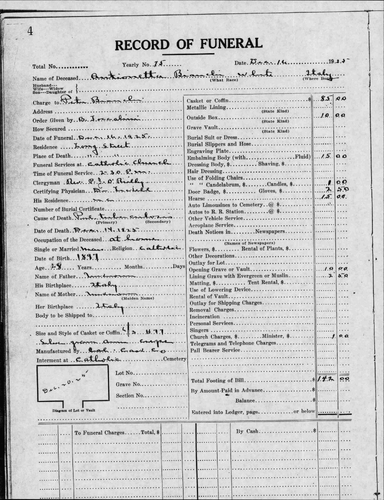 4
RECORD OF FUNERAL
Total No. Yearly No. 75 Date Dec. 16 1925
Name of Deceased Antionetta White Italy
(What Race) (Where Born)
Husband—
Wife—Widow
Son—Daughter of
Charge to Pete
Address
Order Given by
How Secured
Date of Funeral Dec. 16 1925
Residence Long Street
Place of Death " "
Funeral Services at Catholic Church
Time of Funeral Service 2:30 P.M.
Clergyman Rev. P. J. O'Reilly
Certifying Physician Dr.
His Residence
Number of Burial Certificate
Cause of Death
(Primary) (Secondary)
Date of Death Dec. 14, 1925
Occupation of the Deceased at home
Single or Married Religion Catholic
Date of Birth 1897
Age, 28 Years Months Days
Name of Father Unknown
His Birthplace Italy
Name of Mother Unknown
(Maiden Name)
Her Birthplace Italy
Body to be Shipped to
Size and Style of Casket or Coffin
Manufactured by
Interment at Catholic Cemetery
Lot No.
Grave No.
Section No.
Diagram of Lot or Vault
Casket or Coffin $ 85 00
(State Kind)
Metallic Lining
Outside Box 10 00
(State Kind)
Grave Vault
(State Kind)
Burial Suit or Dress
Burial Slippers and Hose
Engraving Plate
Embalming Body (with Fluid) 15 00
Dressing Body, $ Shaving, $
Hair Dressing
Use of Folding Chairs
" " Candelabrum, $ Candles, $ 1 00
Door Badge, $ Gloves, $ 2 50
Hearse 15 00
Auto Limousines to Cemetery @ $
Autos to R. R. Station @ $
Other Vehicle Service
Aeroplane Service
Death Notices in Newspapers
(Names of Newspapers)
Flowers, $ Rental of Plants, $
Other Decorations
Outlay for Lot
Opening Grave or Vault 10 00
Lining Grave with Evergreen or Muslin 2 50
Matting, $ Tent Rental, $
Use of Lowering Device
Rental of Vault
Outlay for Shipping Charges
Removal Charges
Incineration
Personal Services
Singers
Church Charges, $ Minister, $ 1 00
Telegrams and Telephone Charges
Pall Bearer Service
Total Footing of Bill $ 142 00
By Amount Paid in Advance
Balance $
Entered into Ledger, page or below
To Funeral Charges Total, $ By Cash $